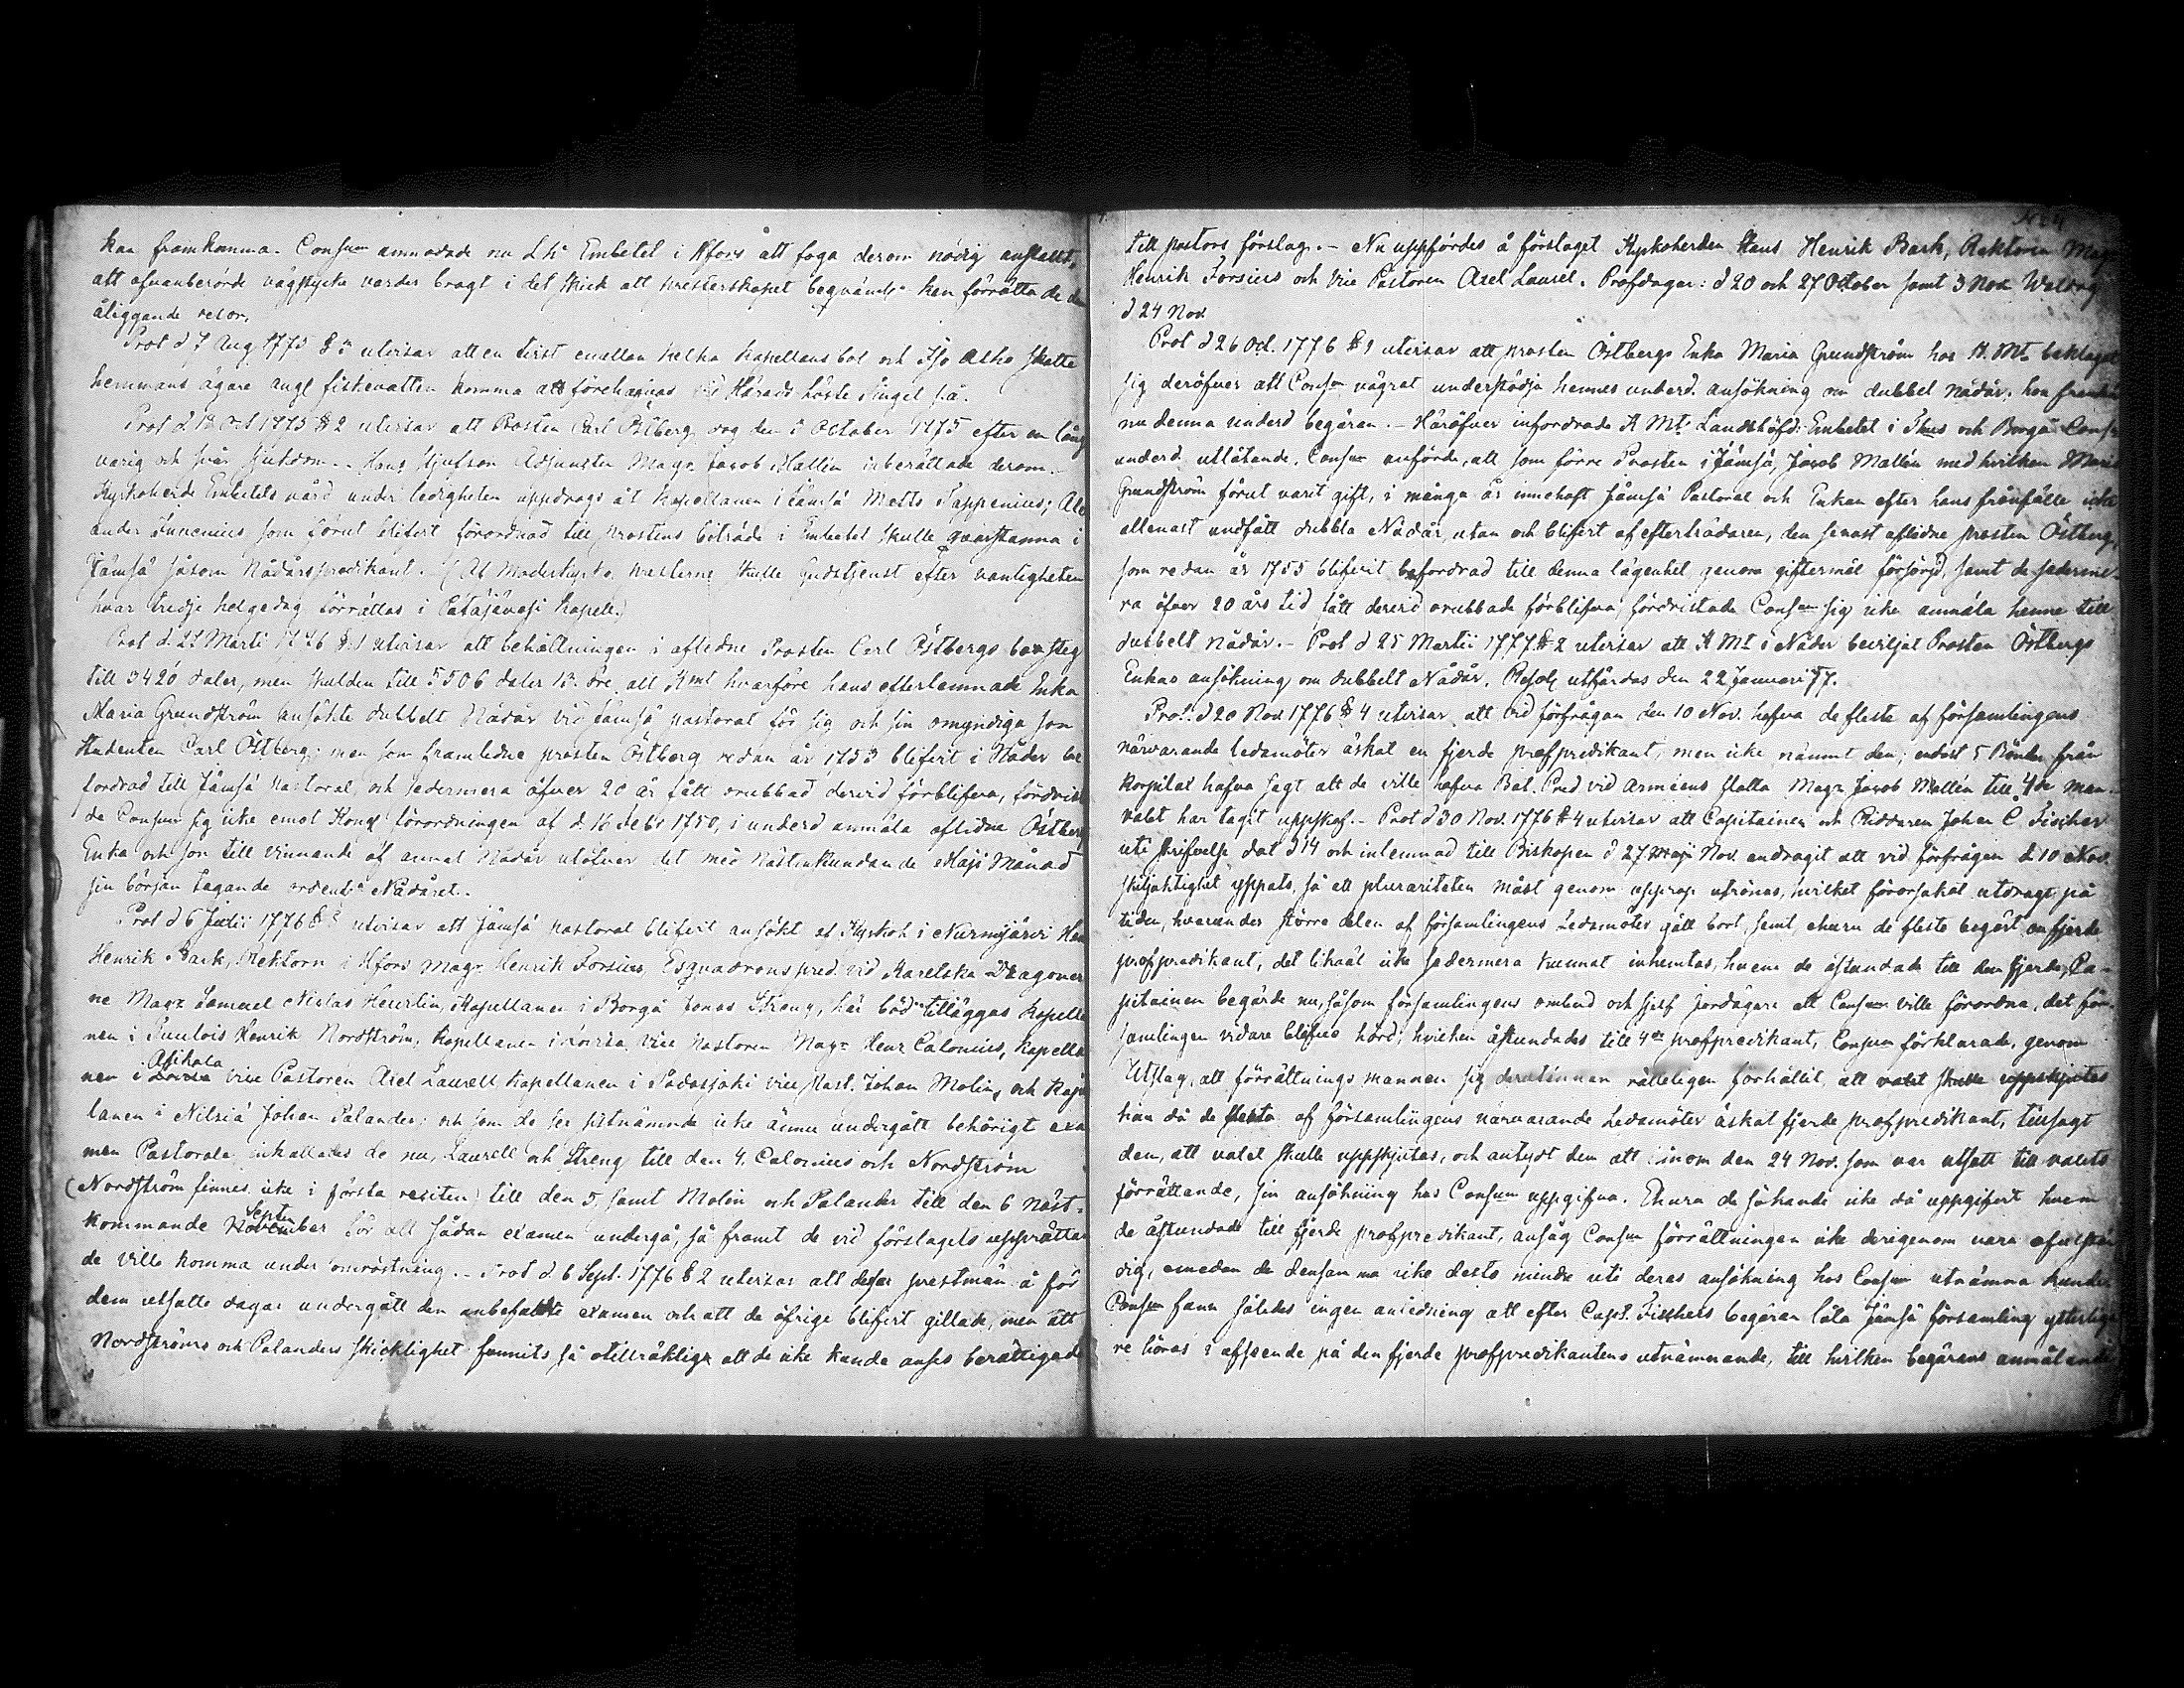 kan framkomma. Consum anmodade nu L.h: Embetet i Hfors att foga derom nödig anstallt,
att ofvanberörde vägstycke varder bragt i det skick att presterskapet beqvämt kan förrätta de dem
åliggande resor.
Prot d 7 Aug 1775 § utvisar att en tvist emellan Kapellans bol och Iso Alho skatte
hemmans ägare ang: fiskevatten komma att förehafvas vid Härads Höste Tinget på.
Prot d 18 Oct 1775 § 2 utvisar att Prosten Carl Östberg dog den October 1775 efter en lång
varig och svår sjukdom. Hans Stjufson Adjuncten Mag: Jacob Mallén inberättade derom.
Kyrkoherde Embetets vård under ledigheten uppdrogs åt Kapellanen i Jämsä Matts Pappenius; Alex
ander Juncenius som förut blifvit förordnad till prostens biträde i Embetet skulle qvarstanna i
Jämsä såsom Nådårspredikant. (Af Moderkyrko presterne skulle Gudstjenst efter vanligheten
hvar tredje helgedag förrättas i Petäjävesi Kapell.)
Prot d. 21 Martii 1776 § 1 utvisar att behållningen i aflidne Prosten Carl Östbergs bo steg
till 3420 daler, men skulden till 5506 daler 13. öre allt Kmt hvarföre hans efterlemnade Enka
Maria Grundström ansökte dubbelt Nådår vid Jämsä pastorat för sig och sin omyndiga son
Studenten Carl Östberg; men som framledne prosten Östberg redan år 1753 blifvit i Nåder be
fordrad till Jämsä Pastorat, och sedermera öfver 20 år fått orubbad dervid förblifva, fördrista
de Consum sig icke emot Kongl förordningen af d. 16 Febr 1750, i underd anmäla aflidne Östbergs
Enka och son till vinnande af annat Nådår utöfver det med nästinstundande Maji Månad
sin början tagande ordentl: Nådåret.
Prot d 6 Julii 1776 § utvisar att Jämsä pastorat blifvit ansökt af Kyrkoh i Nurmijärvi Hans
Henrik Bark, Rektorn i Hfors Mag: Henrik Forsius, Esquadronspred. vid Karelska Dragoner
ne Mag: Samuel Niclas Heurlin, Kapellanen i Borgå Jonas Streng, här böd tilläggas Kapella
nen i Henrik Nordström, Kapellanen i Lovisa Vice Pastoren Mag: Henr Calonius, Kapella
Asikkala
nen i Lovisa vice Pastoren Axel Laurell Kapellanen i Padasjoki vice Past. Johan Molin, och Kapel
lanen i Nilsiä Johan Palander; och som de sex sistnämnde icke ännu undergått behörigt exa
men Pastorale inkallades de nu, Laurell och Streng till den 4. Calonius och Nordström
(Nordström finnes icke i första resiten) till den 5. samt Molin och Palander till den 6 näst-
Septem
kommande November för att sådan examen undergå, så framt de vid förslagets upprättan
de ville komma under omröstning. Prot d. 6 Sept. 1776 § 2 utvisar att desse prestmän å för
dem utsatte dagar undergått den anbefalte examen och att de öfrige blifvit gillade, men att
Nordströms och Palanders skicklighet funnits så otillräcklig att de icke kunde anses berättigade
till pastors förslag. – Nu uppfördes å förslaget Kyrkoherden Hans Henrik Bark, Rektorn Mag:
Henrik Forsius och Vice Pastoren Axel Laurel. Profdagar: d 20 och 27 October samt 3 Nov. Valdag
d 24 Nov.
Prot d 26 Oct. 1776 § 9 utvisar att prosten Östbergs Enka Maria Grundström hos K. Mt beklagat
sig deröfver att Consum vägrat understödja hennes underd. ansökning om dubbel nådår; hon
nu denna underd begäran. – Häröfver infordrade K Mt: Landshöfd: Embetet i Thus och Borgå Consi
underd utlåtande. Consum anförde, att som förre Prosten i Jämsä, Jacob Mallén med hvilken Maria
Grundström förut varit gift, i många år innehaft Jämsä Pastorat och Enkan efter hans frånfälle icke
allenast undfått dubbla Nådår, utan och blifvit af efterträdaren, den senast aflidne prosten Östberg,
som redan år 1755 blifvit befordrad till denna lägenhet genom giftermål försörjd, samt de sederme-
ra öfver 20 års tid fått dervid orubbade förblifva, fördristade Consum sig icke anmäla henne till
dubbelt nådår. – Prot d 25 Martii 1777 § 2 utvisar att K Mt i Nåder beviljat Prosten Östbergs
Enkas ansökning om dubbelt Nådår. Resol: utfärdas den 22 Januari 77.
Prot. d 20 Nov. 1776 § 4 utvisar att vid förfrågan den 10 Nov. hafva de fleste af församlingens
närvarande ledamöter äskat en fjerde profpredikant, men icke nämnt den; endast 5 Bönder från
Korpilax hafva sagt att de ville hafva Bat. Pred vid Arméens flotta Mag: Jacob Mallén till 4de man.
valet har tagit uppskof. – Prot d 30 Nov. 1776 § 4 utvisar att Capitainen och Riddaren Johan C. Fischer
uti skrifvelse dat d 14 och inlemnad till Biskopen d 27 Maji Nov. andragit att vid förfrågan d. 10 Nov.
skiljaktighet yppats, så att pluraliteten måst genom upprop utrönas, hvilket förorsakat utdrägt på
tiden, hvarunder större delen af församlingens Ledamöter gått bort, samt, ehuru de fleste begärt en fjerde
profpredikant, det likväl icke sedermera kunnat inhemtas, hvem de åstundade till den fjerde, Ca-
pitainen begärde nu, såsom församlingens ombud och sjelf jordägare att Consum ville förordna, det för-
samlingen vidare blifves hörd, hvilken åstundades till 4de profpredikant, Consum förklarade, genom
Utslag, att förrättnings mannen sig derutinnan rätteligen förhållit, att valet skulle uppskjutas
han då de flesta af församlingens närvarande Ledamöter äskat fjerde profpredikant, tillsagt
dem, att valet skulle uppskjutas, och antydt dem att innom den 24 Nov. som var utsatt till valets
förrättande, sin ansökning hos Consum uppgifva. Ehuru de sökande icke då uppgifvit hvem
de åstundade till fjerde profpredikant, ansåg Consum förrättningen icke derigenom vara ofullstän
dig, emedan de densamma icke desto mindre uti deras ansökning hos Consum utnämna kunde.
Consum fann således ingen anledning att efter Capt. Fischers begäran låta Jämsä församling ytterliga
re höras i afseende på den fjerde profpredikantens utnämnande, till hvilken begärans anmälande